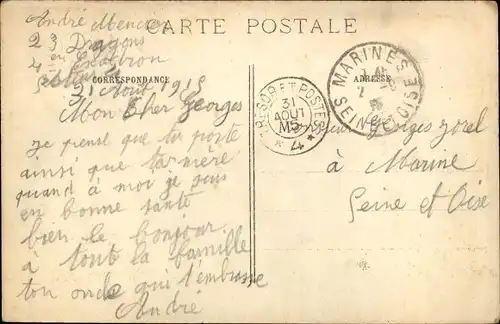 CARTE POSTALE
CORRESPONDANCE
ADRESSE
André
23 Dragons
4 en Escadron
31 Août 1915
Mon Cher Georges
je pense que tu porte
ainsi que ta mère
quand à moi je suis
en bonne santé
bien le bonjour
à tout la famille
ton oncle qui t'embrasse
André
TRESOR ET POSTES
31
AOUT
* 4 *
MARINES
SEINE ET OISE
Monsieur Georges
à Marine
Seine et Oise